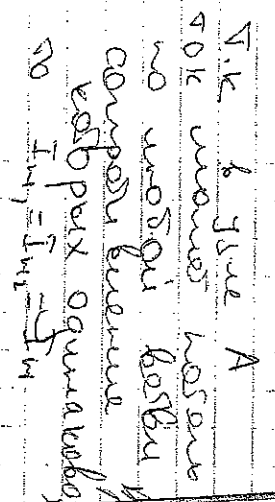 Т.к в узле А
ток может потечь
по любой ветви
сопротивление
которых одинаково
то I_{н1} = I_{н2} = I_н